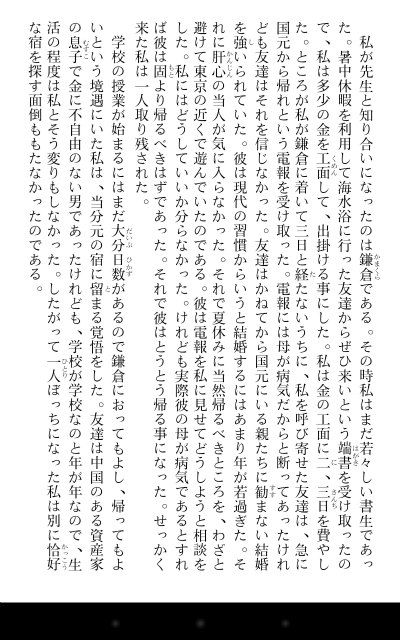 私が先生と知り合いになったのは鎌倉である。その時私はまだ若々しい書生であっ
た。暑中休暇を利用して海水浴に行った友達からぜひ来いという端書を受け取ったの
で、私は多少の金を工面して、出掛ける事にした。私は金の工面に二、三日を費やし
た。ところが私が鎌倉に着いて三日と経たないうちに、私を呼び寄せた友達は、急に
国元から帰れという電報を受け取った。電報には母が病気だからと断ってあったけれ
ども友達はそれを信じなかった。友達はかねてから国元にいる親たちに勧まない結婚
を強いられていた。彼は現代の習慣からいうと結婚するにはあまり年が若過ぎた。そ
れに肝心の当人が気に入らなかった。それで夏休みに当然帰るべきところを、わざと
避けて東京の近くで遊んでいたのである。彼は電報を私に見せてどうしようと相談を
した。私にはどうしていいか分らなかった。けれども実際彼の母が病気であるとすれ
ば彼は固より帰るべきはずであった。それで彼はとうとう帰る事になった。せっかく
来た私は一人取り残された。
学校の授業が始まるにはまだ大分日数があるので鎌倉におってもよし、帰ってもよ
いという境遇にいた私は、当分元の宿に留まる覚悟をした。友達は中国のある資産家
の息子で金に不自由のない男であったけれども、学校が学校なのと年が年なので、生
活の程度は私とそう変りもしなかった。したがって一人ぼっちになった私は別に恰好
な宿を探す面倒ももたなかったのである。